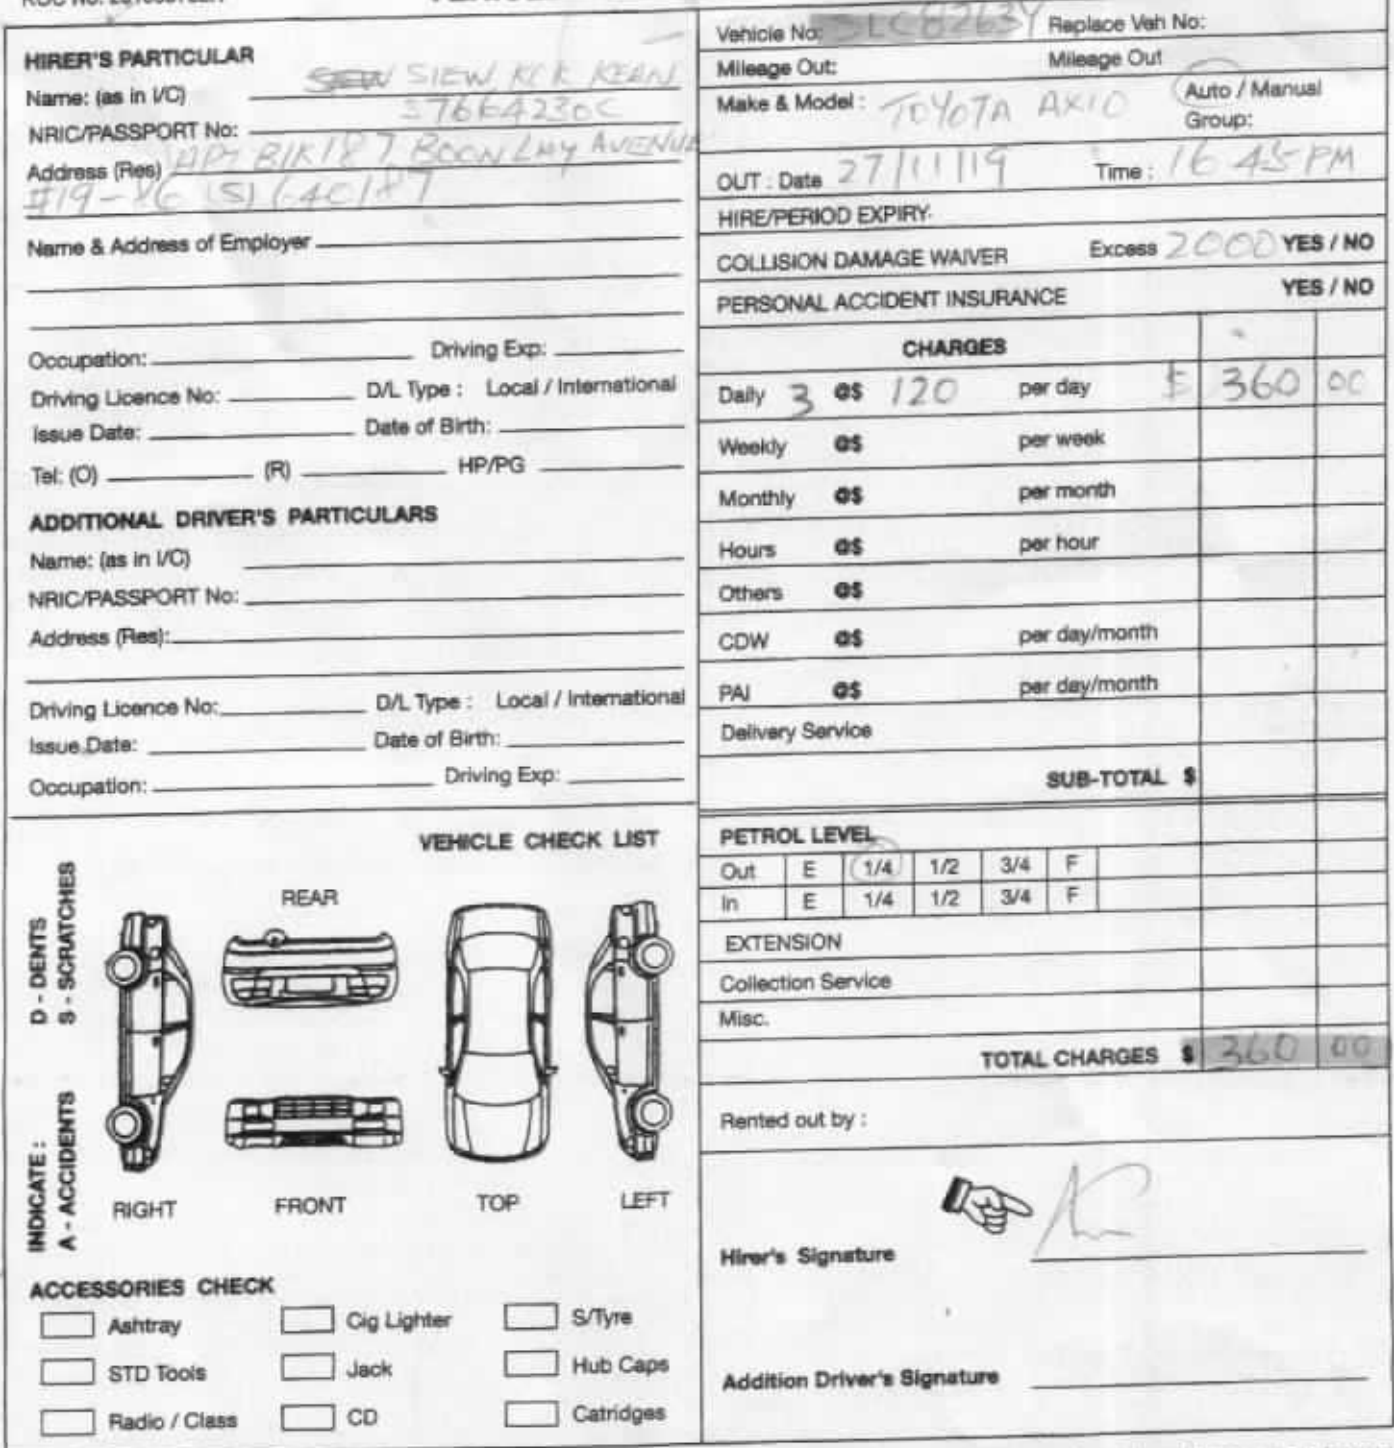 HIRER'S PARTICULAR
Name: (as in I/C) SIEW KOK KEAN
NRIC/PASSPORT No: S7664230C
Address (Res) APT BLK 187 BOON LAY AVENUE
#19-86 (S) 640187
Name & Address of Employer
Occupation: Driving Exp:
Driving Licence No: D/L Type : Local / International
Issue Date: Date of Birth:
Tel: (O) (R) HP/PG
ADDITIONAL DRIVER'S PARTICULARS
Name: (as in I/C)
NRIC/PASSPORT No:
Address (Res):
Driving Licence No: D/L Type : Local / International
Issue Date: Date of Birth:
Occupation: Driving Exp:
VEHICLE CHECK LIST
INDICATE : D - DENTS
A - ACCIDENTS S - SCRATCHES
REAR
RIGHT FRONT TOP LEFT
ACCESSORIES CHECK
Ashtray Cig Lighter S/Tyre
STD Tools Jack Hub Caps
Radio / Class CD Catridges
Vehicle No: SLC8263Y Replace Veh No:
Mileage Out: Mileage Out
Make & Model : TOYOTA AXIO Auto / Manual
Group:
OUT : Date 27/11/19 Time : 16 45 PM
HIRE/PERIOD EXPIRY.
COLLISION DAMAGE WAIVER Excess 2000 YES / NO
PERSONAL ACCIDENT INSURANCE YES / NO
CHARGES
Daily 3 @$ 120 per day $ 360 00
Weekly @$ per week
Monthly @$ per month
Hours @$ per hour
Others @$
CDW @$ per day/month
PAI @$ per day/month
Delivery Service
SUB-TOTAL $
PETROL LEVEL
Out E 1/4 1/2 3/4 F
In E 1/4 1/2 3/4 F
EXTENSION
Collection Service
Misc.
TOTAL CHARGES $ 360 00
Rented out by :
Hirer's Signature
Addition Driver's Signature